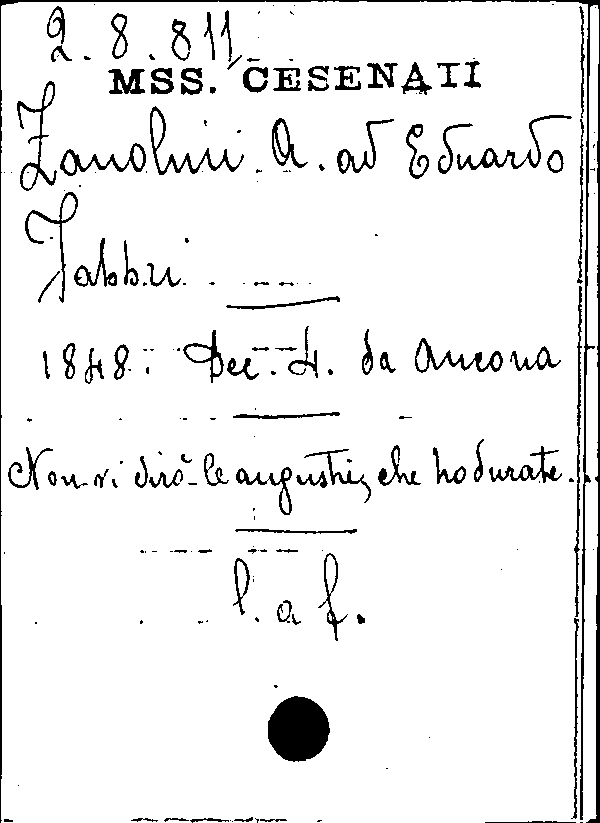 2.8.811
MSS. CESENATI
Zanolini A. ad Eduardo
Fabbri.
1848. Dec. 4. da Ancona
Non vi dirò le angustie, che ho durate...
l. a f.